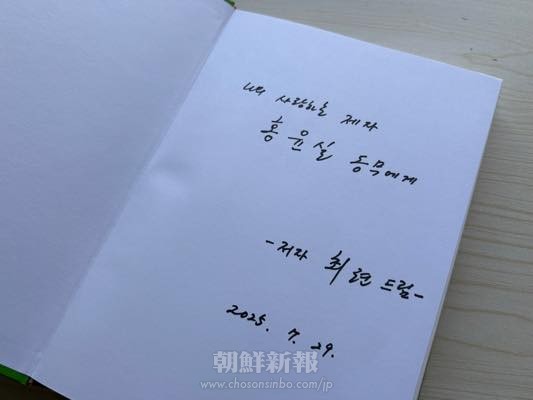 나의 사랑하는 제자
홍윤실 동무에게
-저자 최련 드림-
2025. 7. 29.
朝鮮新報
www.chosonsinbo.com/jp